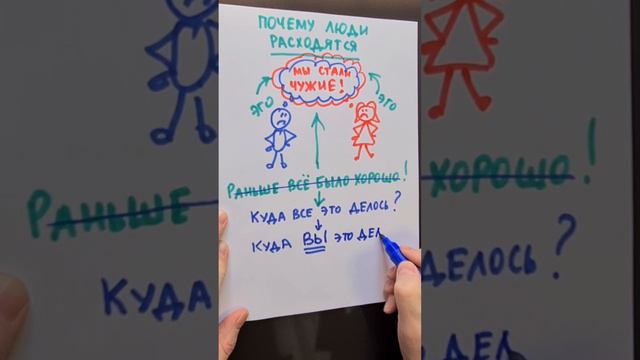 ПОЧЕМУ ЛЮДИ
РАСХОДЯТСЯ
МЫ СТАЛИ
ЧУЖИЕ!
ЭГО
ЭГО
РАНЬШЕ ВСЁ БЫЛО ХОРОШО!
КУДА ВСЕ ЭТО ДЕЛОСЬ?
КУДА ВЫ ЭТО ДЕЛ